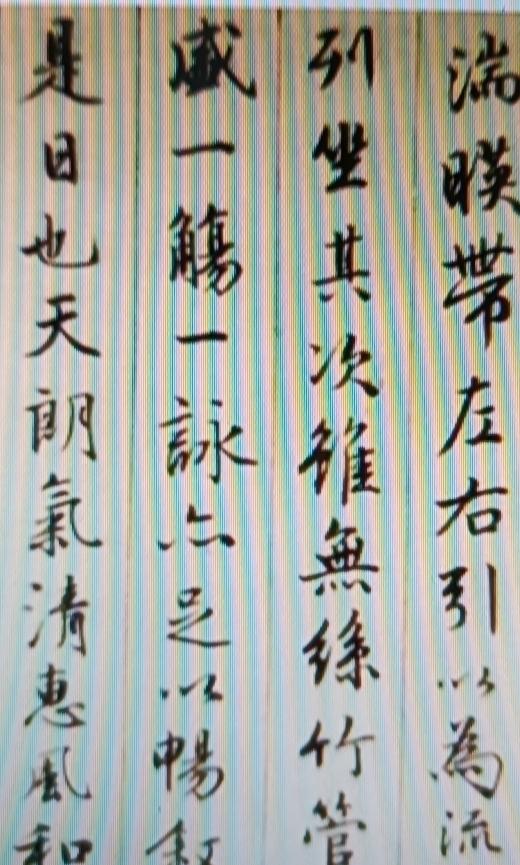 湍暎帶左右引以為流
列坐其次雖無絲竹管
盛一觴一詠亦足以暢敘
是日也天朗氣清惠風和